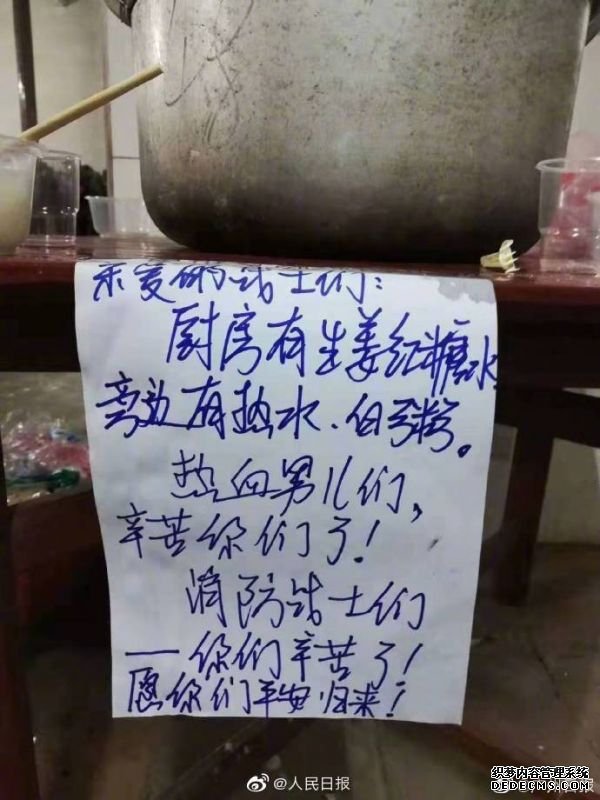 亲爱的战士们：
厨房有生姜红糖水
旁边有热水、白粥。
热血男儿们，
辛苦你们了！
消防战士们
——你们辛苦了！
愿你们平安归来！
@人民日报
织梦内容管理系统
DEDECMS.COM